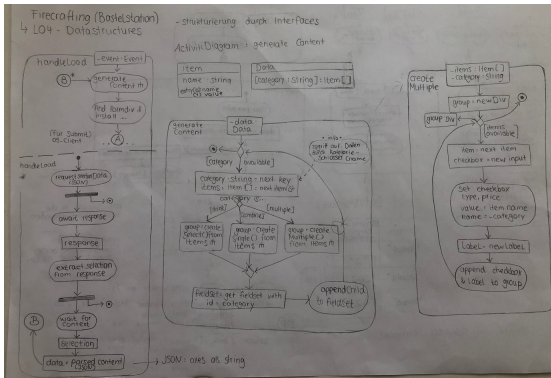 Firecrafting (Bastelstation)
↳ L04 - Datastructures
- strukturierung durch Interfaces
Activiti Diagram: generate Content
handleLoad
- event: Event
B
generate
Content
find formdiv &
install ...
A
(für Submit)
os-client
handleLoad
(JSON)
await response
response
extract selection
from response
wait for
context
Selection
data = parsed content
(JSON)
B
→ JSON: axes as string
Item
name : string
Data
[category : String] : Item []
generate
Content
- data
Data
[category available]
category : string = next key
items : Item [] =
category
[multiple]
group = create
Select() from
items
group = create
Single() from
items
group = create
Multiple()
from items
fieldset = get fieldset with
id = category
append child
to fieldset
create
Multiple
- items : Item []
- category : string
group = new Div
group Div
[items
available]
item = next item
checkbox = new input
set checkbox
type, price
value = item name
name = category
Label = new Labels
append checkbox
& Label to group